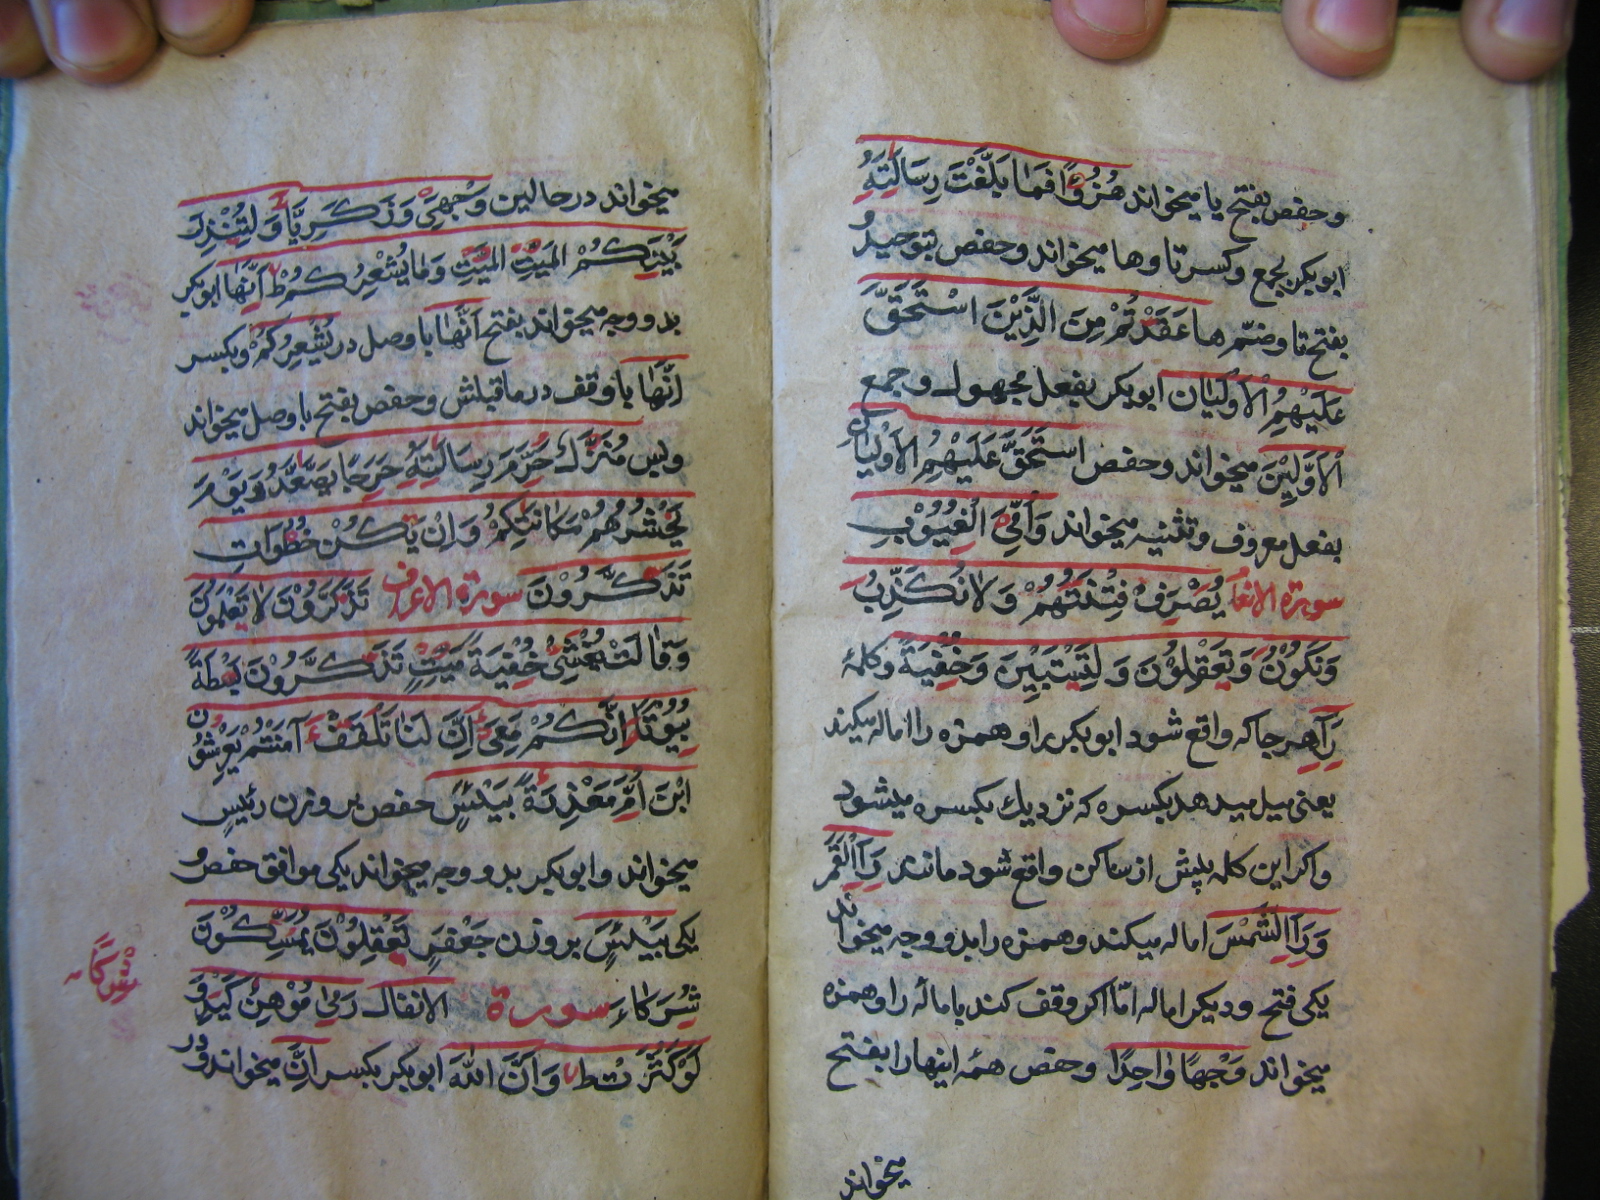 و حفص بفتح یا میخواند هُزُوًا فَمَا بَلَّغْتَ رِسَالَتَهُ
ابوبکر بجمع و کسر تا و ها میخواند و حفص بتوحید
بفتح تا و ضمّ ها عَقَدْتُمْ مِنَ الَّذِيْنَ اسْتَحَقَّ
عَلَيْهِمُ الْاَوْلَيَانِ ابوبکر بفعل مجهول و جمع
الْاَوَّلِيْنَ میخواند و حفص اسْتَحَقَّ عَلَيْهِمُ الْاَوْلَيَانِ
بفعل معروف و تثنیه میخواند وَاُمِّيَ الْغُيُوْبِ
سورة الانعام يُصْرَفْ فِتْنَتُهُمْ وَلَا نُكَذِّبُ
وَنَكُوْنُ وَتَعْقِلُوْنَ وَلِتَسْتَبِيْنَ وَخُفْيَةً و کلمهٔ
رَاٰ هر جا که واقع شود ابوبکر را و همزه را اماله میکند
یعنی میل میدهد بکسره که نزدیك بکسره میشود
و اکر این کلمه پیش از ساکن واقع شود مانند رَاَ الْقَمَرَ
وَرَاَ الشَّمْسَ اماله میکند و همزه را بدو وجه میخواند
یکی فتح و دیکر اماله امّا اکر وقف کند باماله را و همزه
میخواند وَجْهًا وَاحِدًا و حفص همه اینها را بفتح
میخواند
میخواند در حالین وَجْهِيَ وَزَكَرِيَّا وَلِتُنْذِرَ
بَيْنَكُمْ الْمَيِّتِ الْمَيِّتَ وَمَا يُشْعِرُكُمْ اَنَّهَا ابوبکر
بدو وجه میخواند بفتح اَنَّهَا با وصل در يُشْعِرُكُمْ و بکسر
اِنَّهَا با وقف در ماقبلش و حفص بفتح با وصل میخواند
و بس مُنَزَّلٌ حَرَّمَ رِسَالَتَهُ حَرَجًا يَصَّعَّدُ وَيَوْمَ
يَحْشُرُهُمْ مَكَانَتِكُمْ وَاِنْ يَكُنْ خُطُوَاتِ
تَذَكَّرُوْنَ سورة الاعراف تَذَكَّرُوْنَ لَا يَعْلَمُوْنَ
وَقَالَتْ يُغْشِيْ خُفْيَةً مَيِّتٍ تَذَكَّرُوْنَ بَسْطَةً
بُيُوْتًا اِنَّكُمْ مَعِيَ اِنَّ لَنَا تَلْقَفُ ءَاٰمَنْتُمْ يَعْرِشُوْنَ
ابْنَ اُمَّ مَعْذِرَةً بَئِيْسٍ حفص بر وزن رئیس
میخواند و ابوبکر بدو وجه میخواند یکی موافق حفص و
یکی بَيْئَسٍ بر وزن جَعْفَرٍ تَعْقِلُوْنَ يُمَسِّكُوْنَ
شُرَكَاءَ سورة الانفال رَمٰى مُوْهِنُ كَيْدِ وَ
لَوْ كَثُرَتْ وَاَنَّ اللّٰهَ ابوبکر بکسر اِنَّ میخواند و در